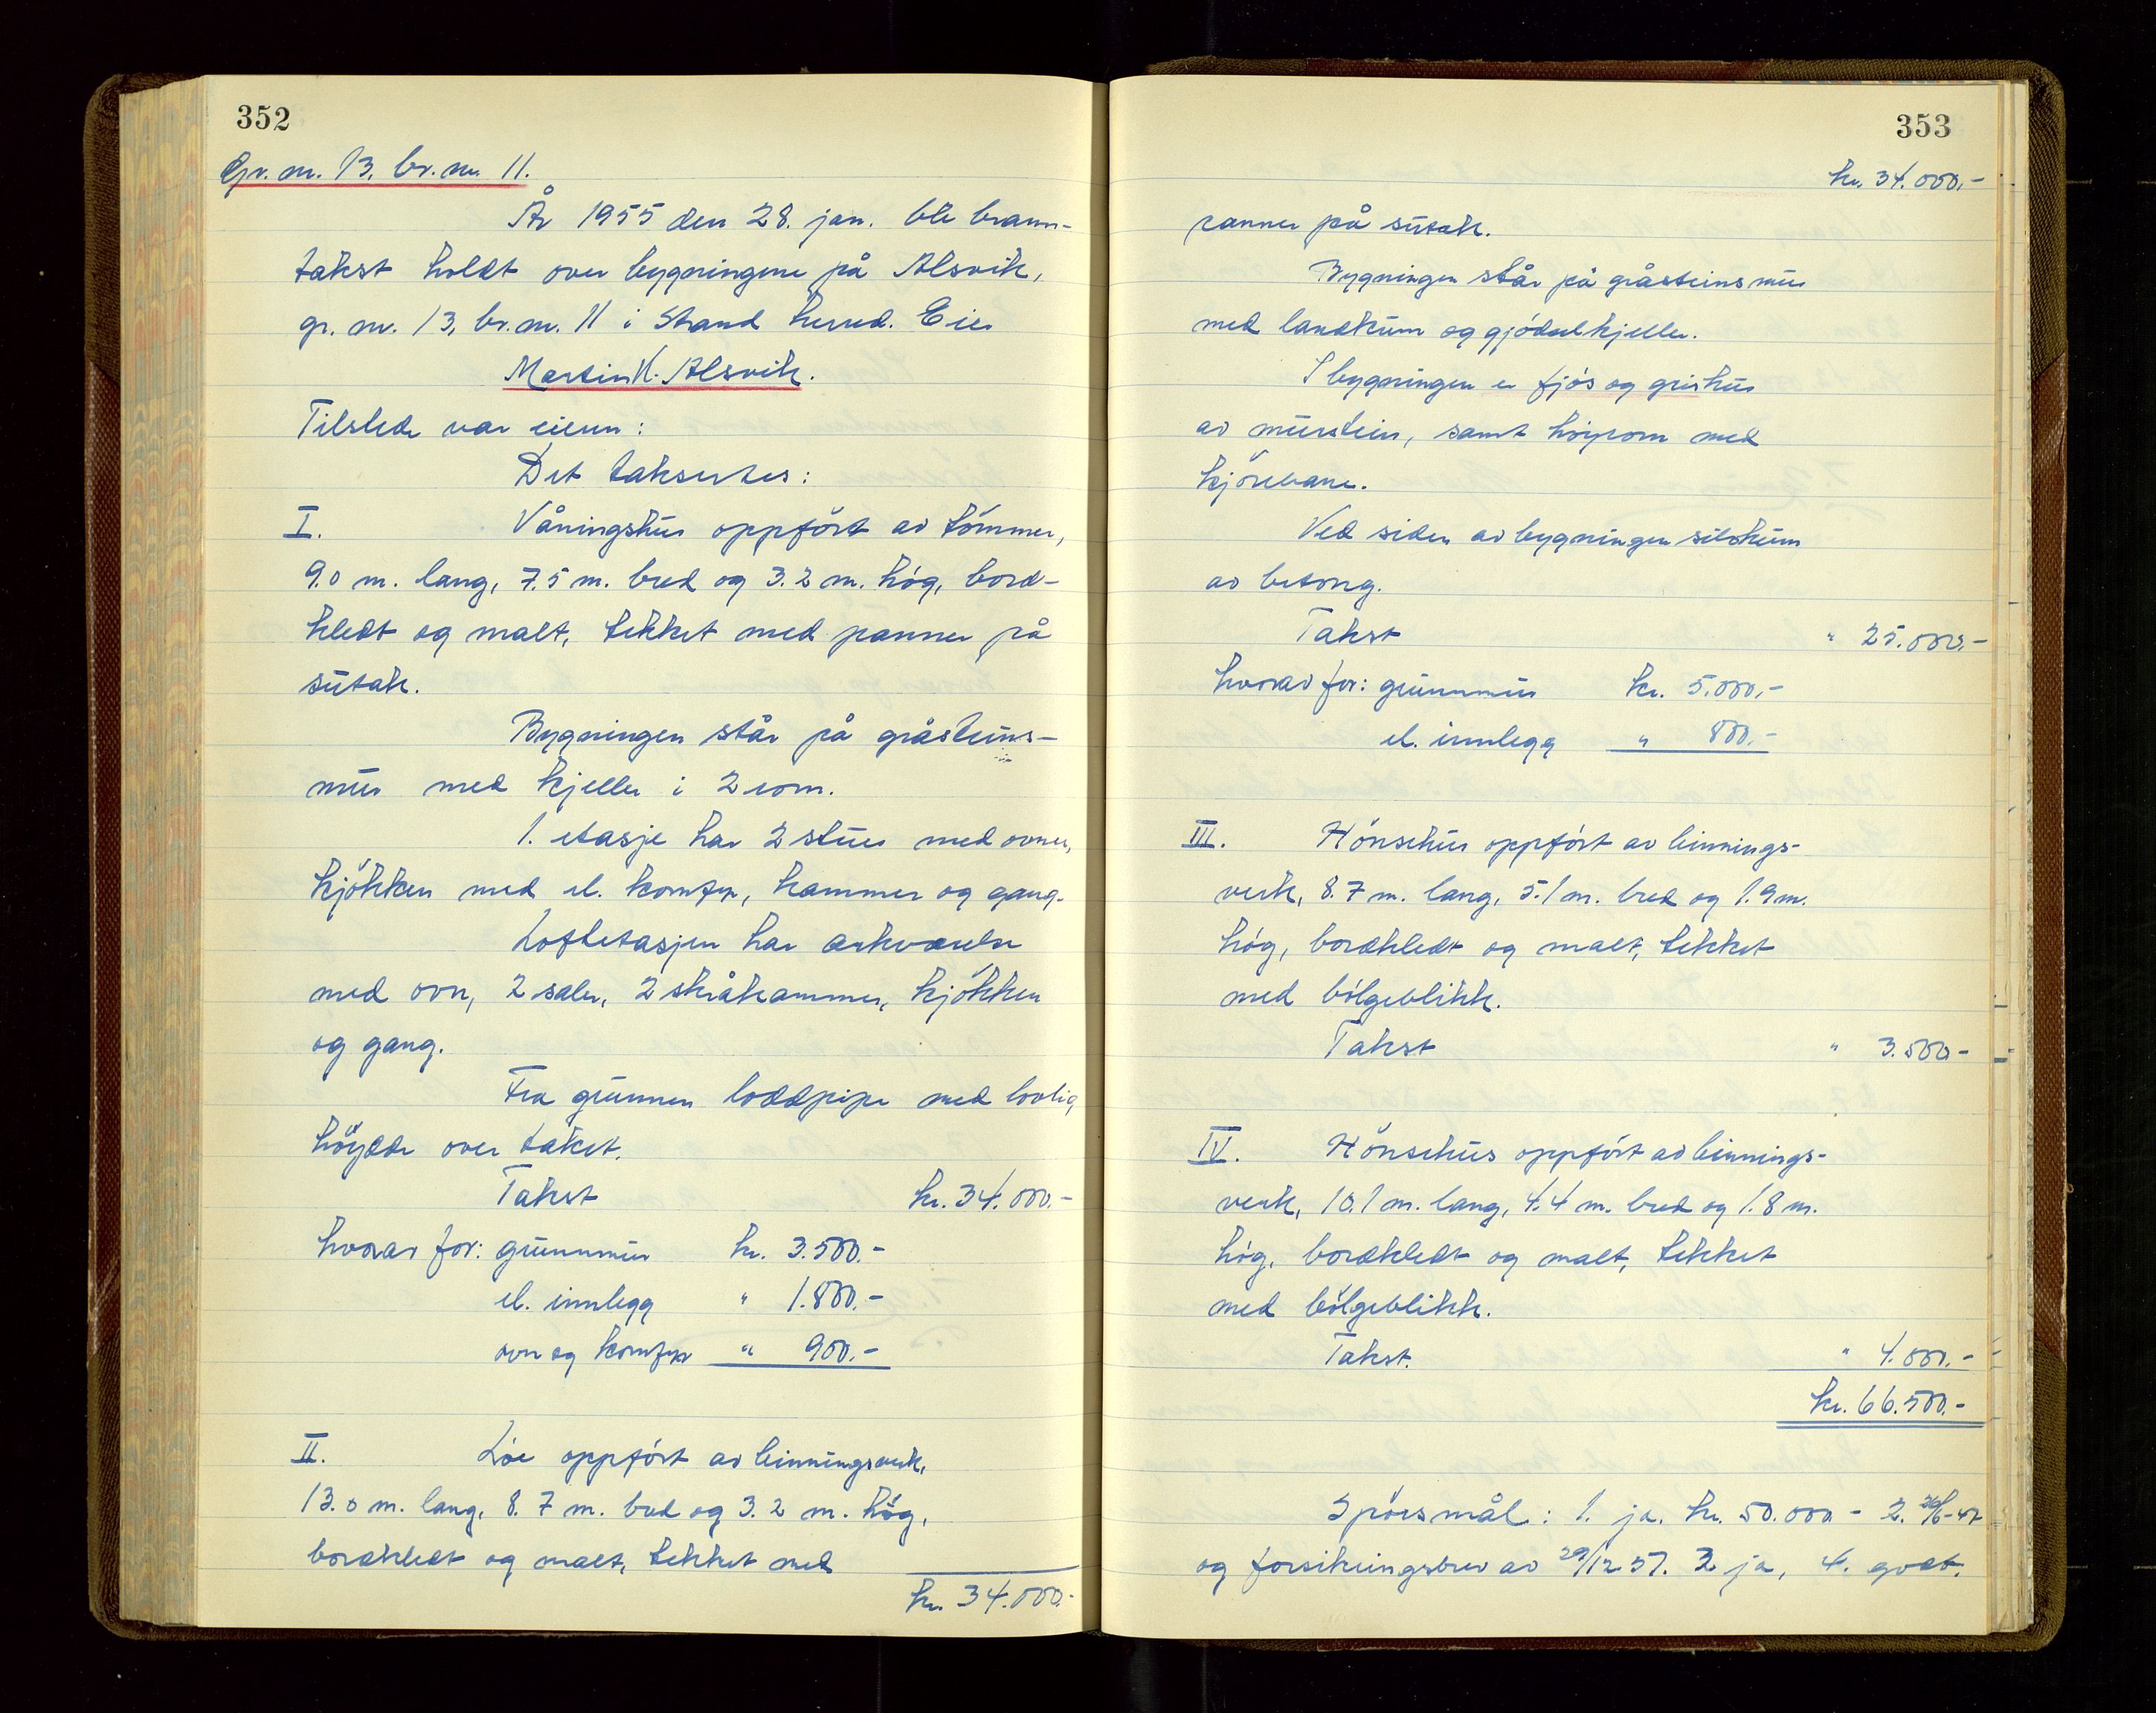 352
Gr. nr. 13, br. nr. 11.
År 1955 den 28. jan. ble brann-
takst holdt over bygningene på Alsvik,
gr. nr. 13, br. nr. 11 i Strand herred. Eier
Martin H. Alsvik.
Tilstede var eieren:
Det taksertes:
I. Våningshus oppført av tømmer,
9.0 m. lang, 7.5 m. bred og 3.2 m. høg, bord-
kledt og malt, tekket med panner på
sutak.
Bygningen står på gråsteins-
mur med kjeller i 2 rom.
1. etasje har 2 stuer med ovner,
kjøkken med el. komfyr, kammer og gang.
Loftetasjen har arkværelse
med ovn, 2 saler, 2 skråkammer, kjøkken
og gang.
Fra grunnen loddpipe med lovlig
høyde over taket.
Takst kr. 34.000.-
hvorav for: grunnmur kr. 3.500.-
el. innlegg " 1.800.-
ovn og komfyr " 900.-
II. Løe oppført av binningsverk,
13.0 m. lang, 8.7 m. bred og 3.2 m. høg,
bordkledt og malt, tekket med
kr. 34.000.-
353
kr. 34.000.-
panner på sutak.
Bygningen står på gråsteinsmur
med landkum og gjødselkjeller.
I bygningen er fjøs og grishus
av murstein, samt høyrom med
kjørebane.
Ved siden av bygningen silokum
av betong.
Takst " 25.000.-
hvorav for: grunnmur kr. 5.000.-
el. innlegg " 800.-
III. Hønsehus oppført av binnings-
verk, 8.7 m. lang, 5.1 m. bred og 1.9 m.
høg, bordkledt og malt, tekket
med bølgeblikk.
Takst " 3.500.-
IV. Hønsehus oppført av binnings-
verk, 10.1 m. lang, 4.4 m. bred og 1.8 m.
høg, bordkledt og malt, tekket
med bølgeblikk.
Takst. " 4.000.-
kr. 66.500.-
Spørsmål: 1. ja. kr. 50.000 - 2.
og forsikringsbrev av 29/12 51. 3 ja, 4. godt.